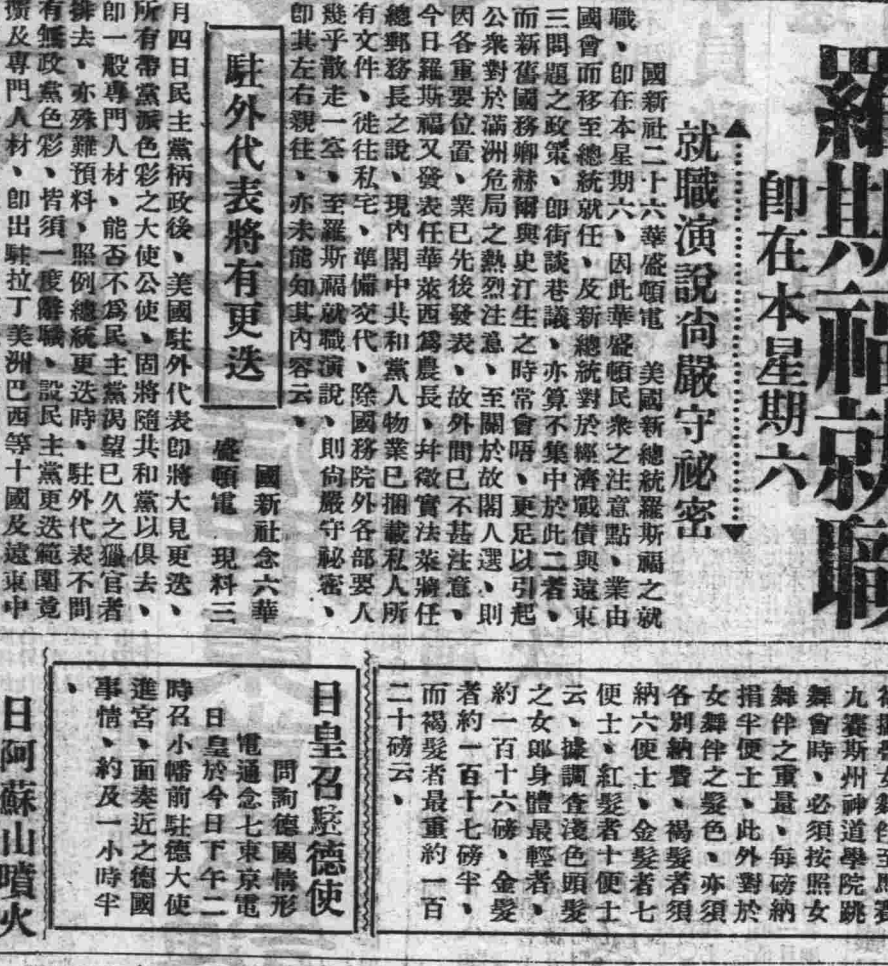 羅斯福就職
即在本星期六
就職演說尙嚴守祕密
國新社二十六華盛頓電　美國新總統羅斯福之就
職、卽在本星期六、因此華盛頓民衆之注意點、業由
國會而移至總統就任、及新總統對於經濟戰債與遠東
三問題之政策、卽街談巷議、亦算不集中於此二者、
而新舊國務卿赫爾與史汀生之時常會唔、更足以引起
公衆對於滿洲危局之熱烈注意、至關於故閣人選、則
因各重要位置、業已先後發表、故外間已不甚注意、
今日羅斯福又發表任華萊西爲農長、幷徵實法萊將任
總郵務長之說、現內閣中共和黨人物業已捆載私人所
有文件、徙往私宅、準備交代、除國務院外各部要人
幾乎散走一空、至羅斯福就職演說、則尙嚴守祕密、
卽其左右親往、亦未能知其內容云、
駐外代表將有更迭
國新社念六華
盛頓電　現料三
月四日民主黨柄政後、美國駐外代表卽將大見更迭、
所有帶黨派色彩之大使公使、固將隨共和黨以俱去、
卽一般專門人材、能否不爲民主黨渴望已久之獵官者
排去、亦殊難預料、照例總統更迭時、駐外代表不問
有無政黨色彩、皆須一度辭職、設民主黨更迭範圍竟
及專門人材、卽出駐拉丁美洲巴西等十國及遠東中
九賽斯州神道學院跳
舞會時、必須按照女
舞伴之重量、每磅納
捐半便士、此外對於
女舞伴之髮色、亦須
各別納費、褐髮者須
納六便士、金髮者七
便士、紅髮者十便士
云、據調查淺色頭髮
之女郎身體最輕者、
約一百十六磅、金髮
者約一百十七磅半、
而褐髮者最重約一百
二十磅云、
日皇召駐德使
問詢德國情形
電通念七東京電
日皇於今日下午二
時召小幡前駐德大使
進宮、面奏近之德國
事情、約及一小時半
、
日阿蘇山噴火